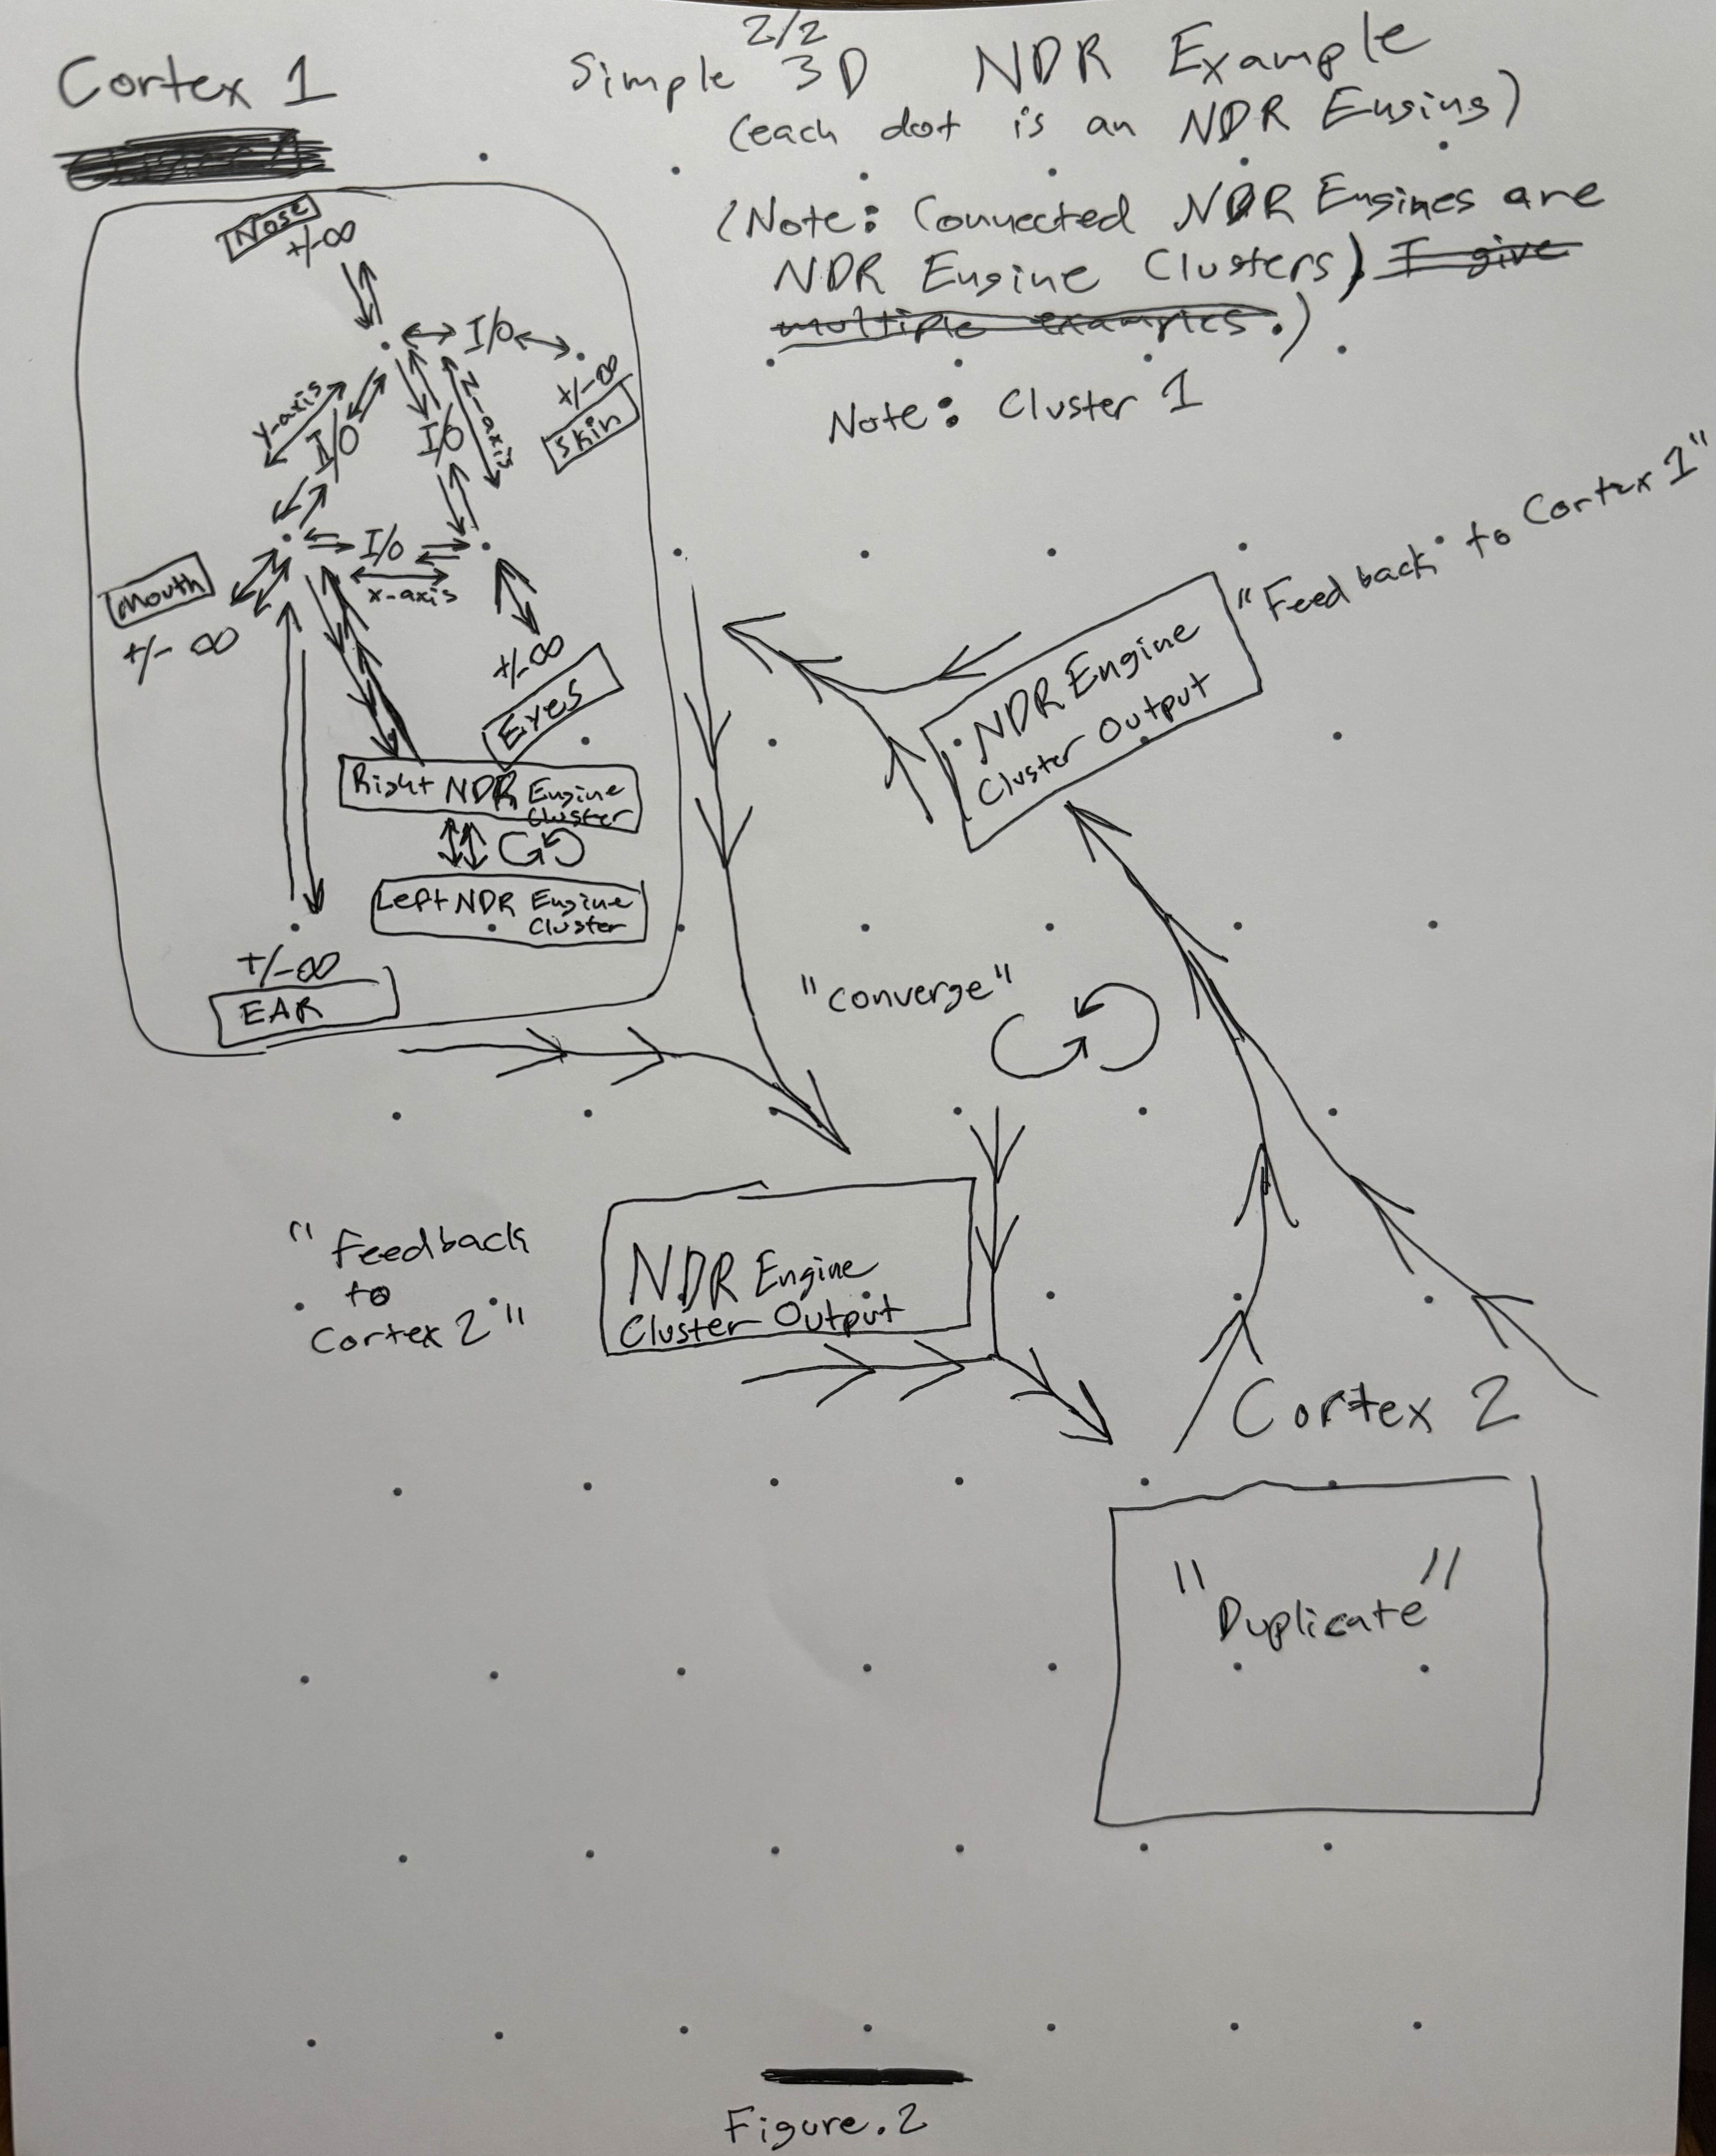 Cortex 1
2/2
Simple 3D NDR Example
(each dot is an NDR Engine)
(Note: Connected NDR Engines are
NDR Engine Clusters) I give
multiple examples.)
Note: Cluster 1
Nose
+/-∞
I/O
+/-∞
Skin
y-axis
I/O
I/O
z-axis
I/O
x-axis
Mouth
+/- ∞
+/-∞
Eyes
Right NDR Engine
Cluster
Left NDR Engine
Cluster
+/-∞
EAR
"Feedback to Cortex 1"
NDR Engine
Cluster Output
"converge"
"Feedback
to
Cortex 2"
NDR Engine
Cluster Output
Cortex 2
"Duplicate"
Figure.2